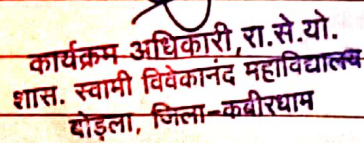 कार्यक्रम अधिकारी,रा.से.यो.
शास. स्वामी विवेकानंद महाविद्यालय
बोड़ला, जिला-कबीरधाम